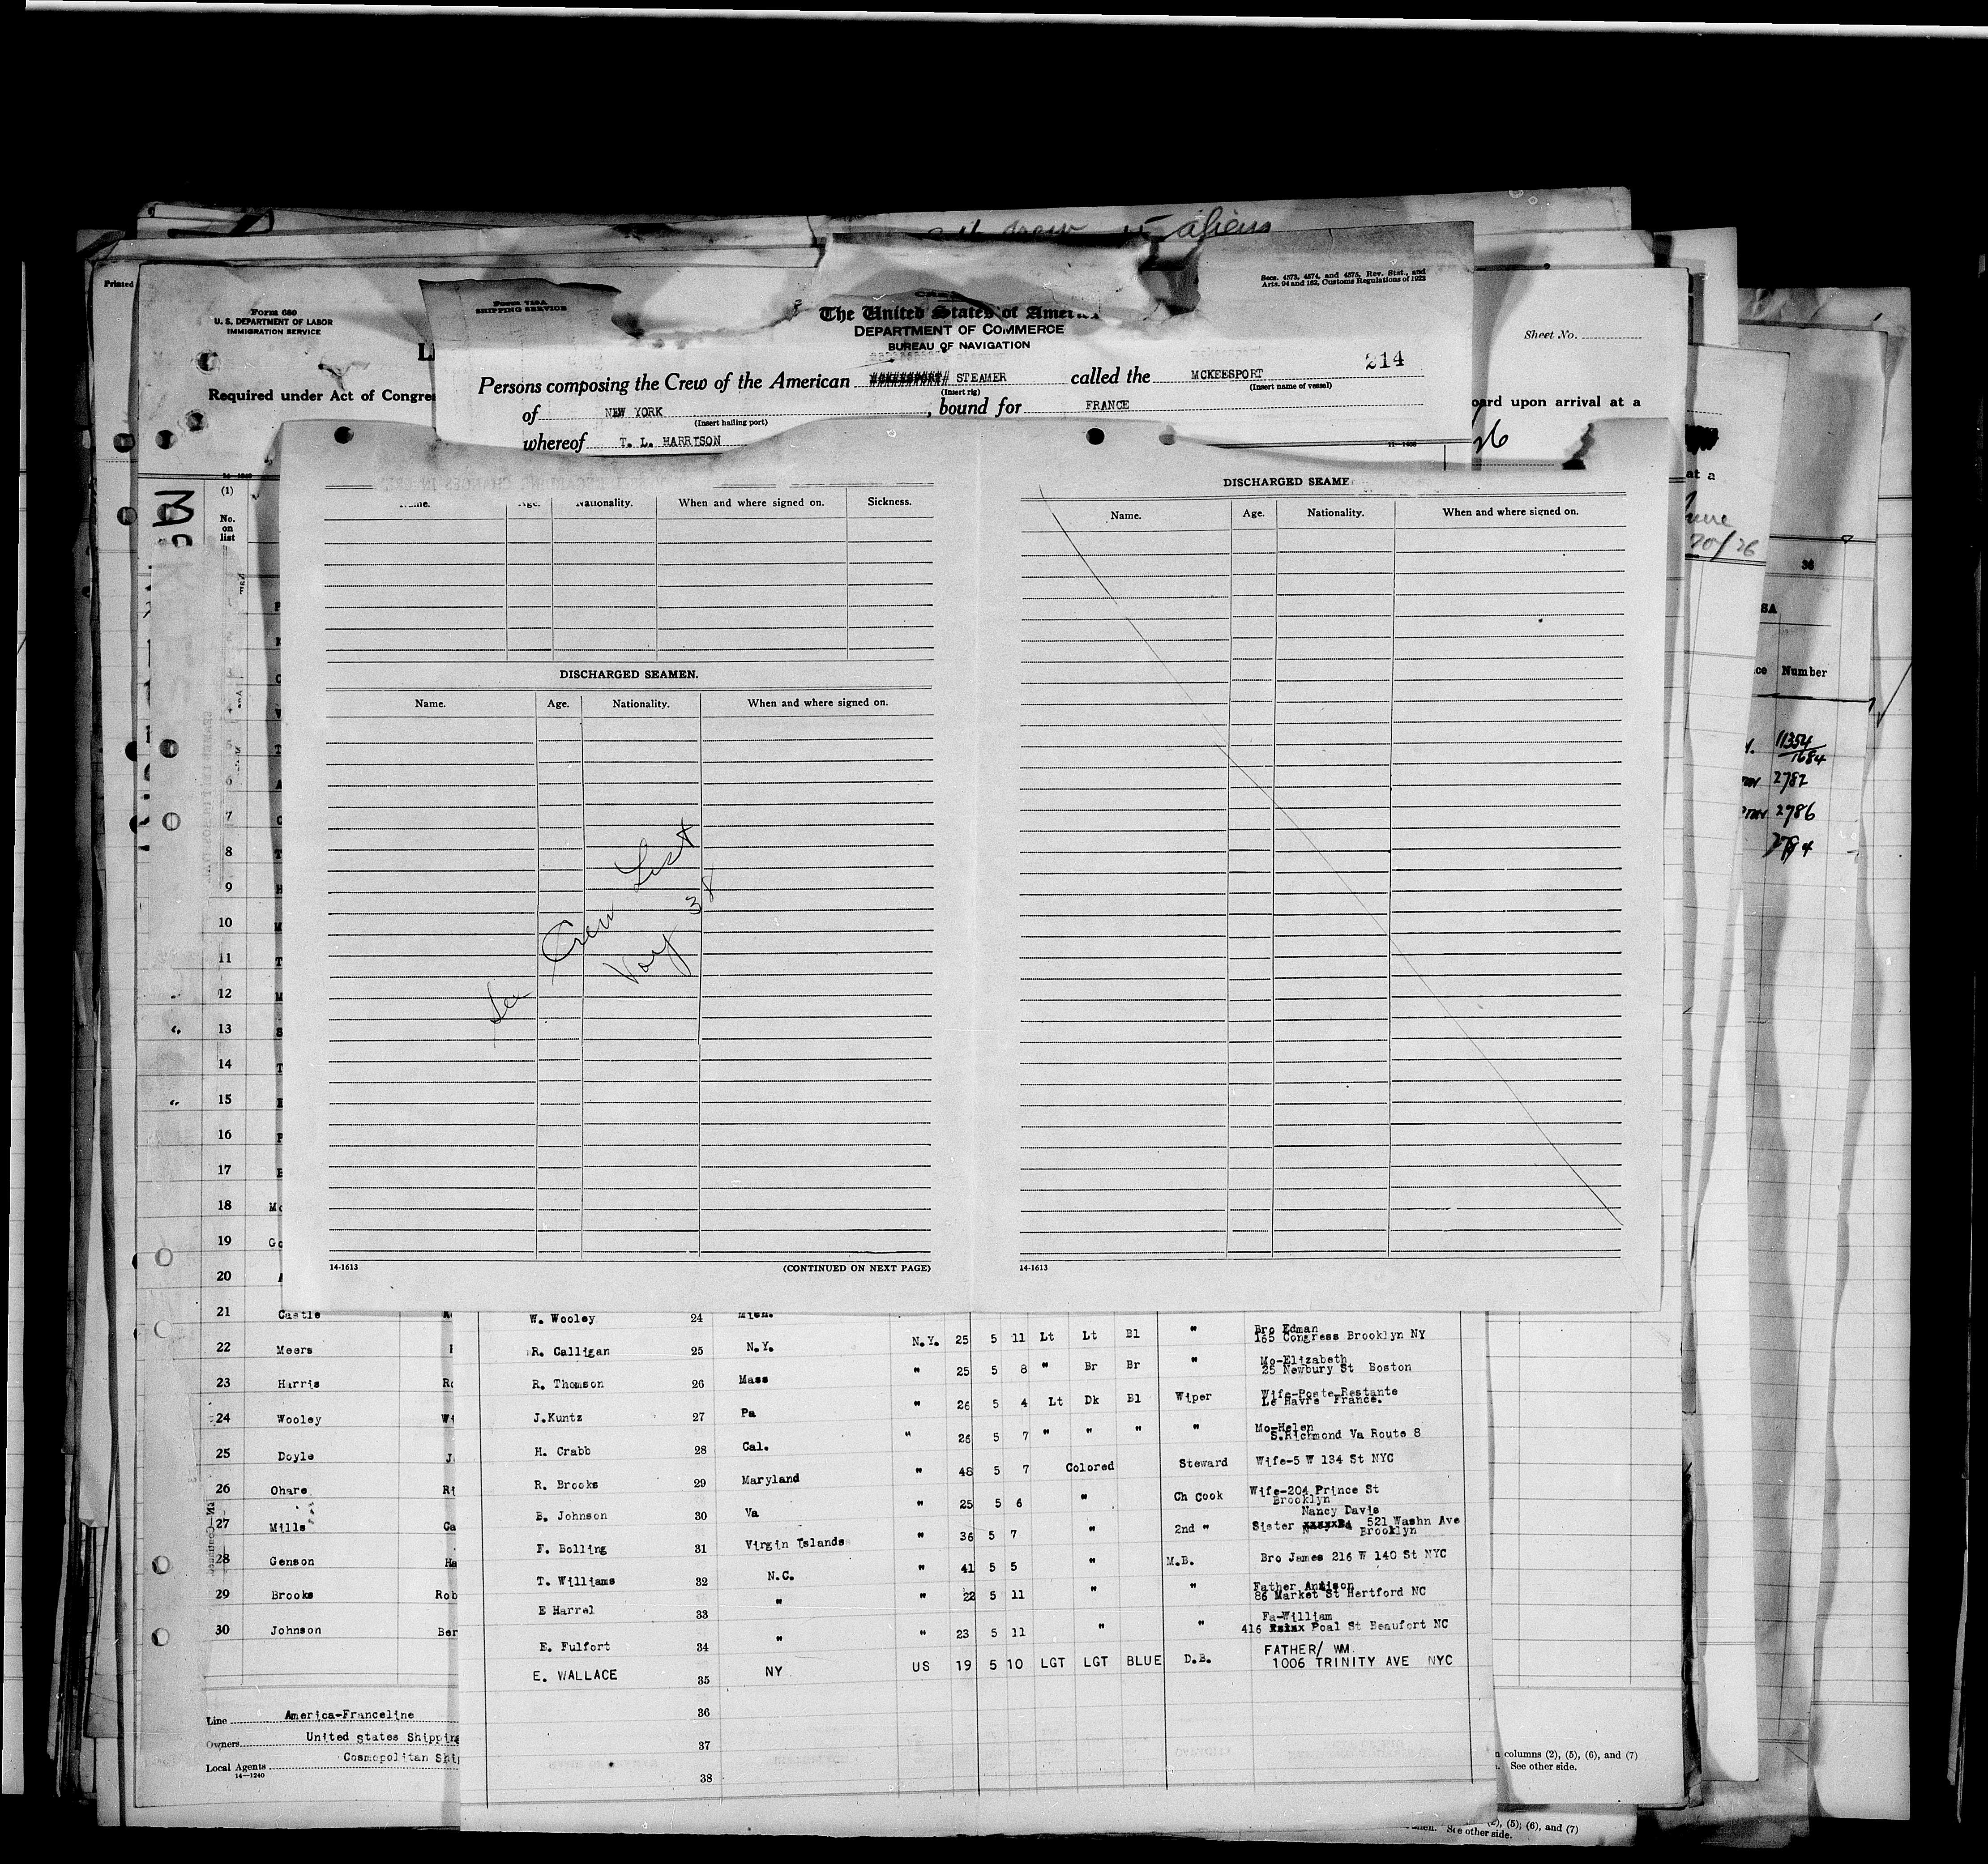 aliens
Printed
Form 680
U. S. DEPARTMENT OF LABOR
IMMIGRATION SERVICE
Required under Act of Congre
Form 710A
SHIPPING SERVICE
Secs. 4573, 4574, and 4575, Rev. Stat., and
Arts. 94 and 162, Customs Regulations of 1923
The United States of Ameri
DEPARTMENT OF COMMERCE
BUREAU OF NAVIGATION
214
Persons composing the Crew of the American STEAMER called the MCKEESPORT
(Insert rig) (Insert name of vessel)
of NEW YORK, bound for FRANCE
(Insert hailing port)
whereof T. L. HARRISON
Sheet No.
oard upon arrival at a
26
at a
June
20/26
36
SA
ce Number
11354
1684
2782
2786
(1)
No.
on
list
Name. Age. Nationality. When and where signed on. Sickness.
DISCHARGED SEAMEN.
Name. Age. Nationality. When and where signed on.
See Crew List
Voy 38
14-1613 (CONTINUED ON NEXT PAGE)
DISCHARGED SEAME
Name. Age. Nationality. When and where signed on.
14-1613
6
7
8
9
10
11
12
13
14
15
16
17
18 Mc
19 Go
20
21 Castle
22 Meers
23 Harris Ro
24 Wooley Wi
25 Doyle J
26 Ohare Ri
27 Mills Ga
28 Genson Ha
29 Brooks Rob
30 Johnson Ber
Line America-Franceline
Owners United states Shipping
Local Agents Cosmopolitan Shi
14-1240
W. Wooley 24 Mich.
R. Calligan 25 N.Y. N.Y. 25 5 11 Lt Lt Bl " Bro Edman
165 Congress Brooklyn NY
R. Thomson 26 Mass " 25 5 8 " Br Br " Mo-Elizabeth
25 Newbury St Boston
J.Kuntz 27 Pa " 26 5 4 Lt Dk Bl Wiper Wife-Poste-Restante
Le Havre France.
H. Crabb 28 Cal. " 26 5 7 " " " " Mo-Helen
S.Richmond Va Route 8
R. Brooks 29 Maryland " 48 5 7 Colored Steward Wife-5 W 134 St NYC
B. Johnson 30 Va " 25 5 6 " Ch Cook Wife-204 Prince St
Brooklyn
F. Bolling 31 Virgin Islands " 36 5 7 " 2nd " Sister Nancy Davis
521 Washn Ave
Brooklyn
T. Williams 32 N.C. " 41 5 5 " M.B. Bro James 216 W 140 St NYC
E Harrel 33 " " 22 5 11 " " Father Annison
86 Market St Hertford NC
E. Fulfort 34 " " 23 5 11 " " Fa-William
416 Poal St Beaufort NC
E. WALLACE 35 NY US 19 5 10 LGT LGT BLUE D.B. FATHER/ WM.
1006 TRINITY AVE NYC
36
37
38
n columns (2), (5), (6), and (7)
See other side.
(2), (5), (6), and (7)
See other side.